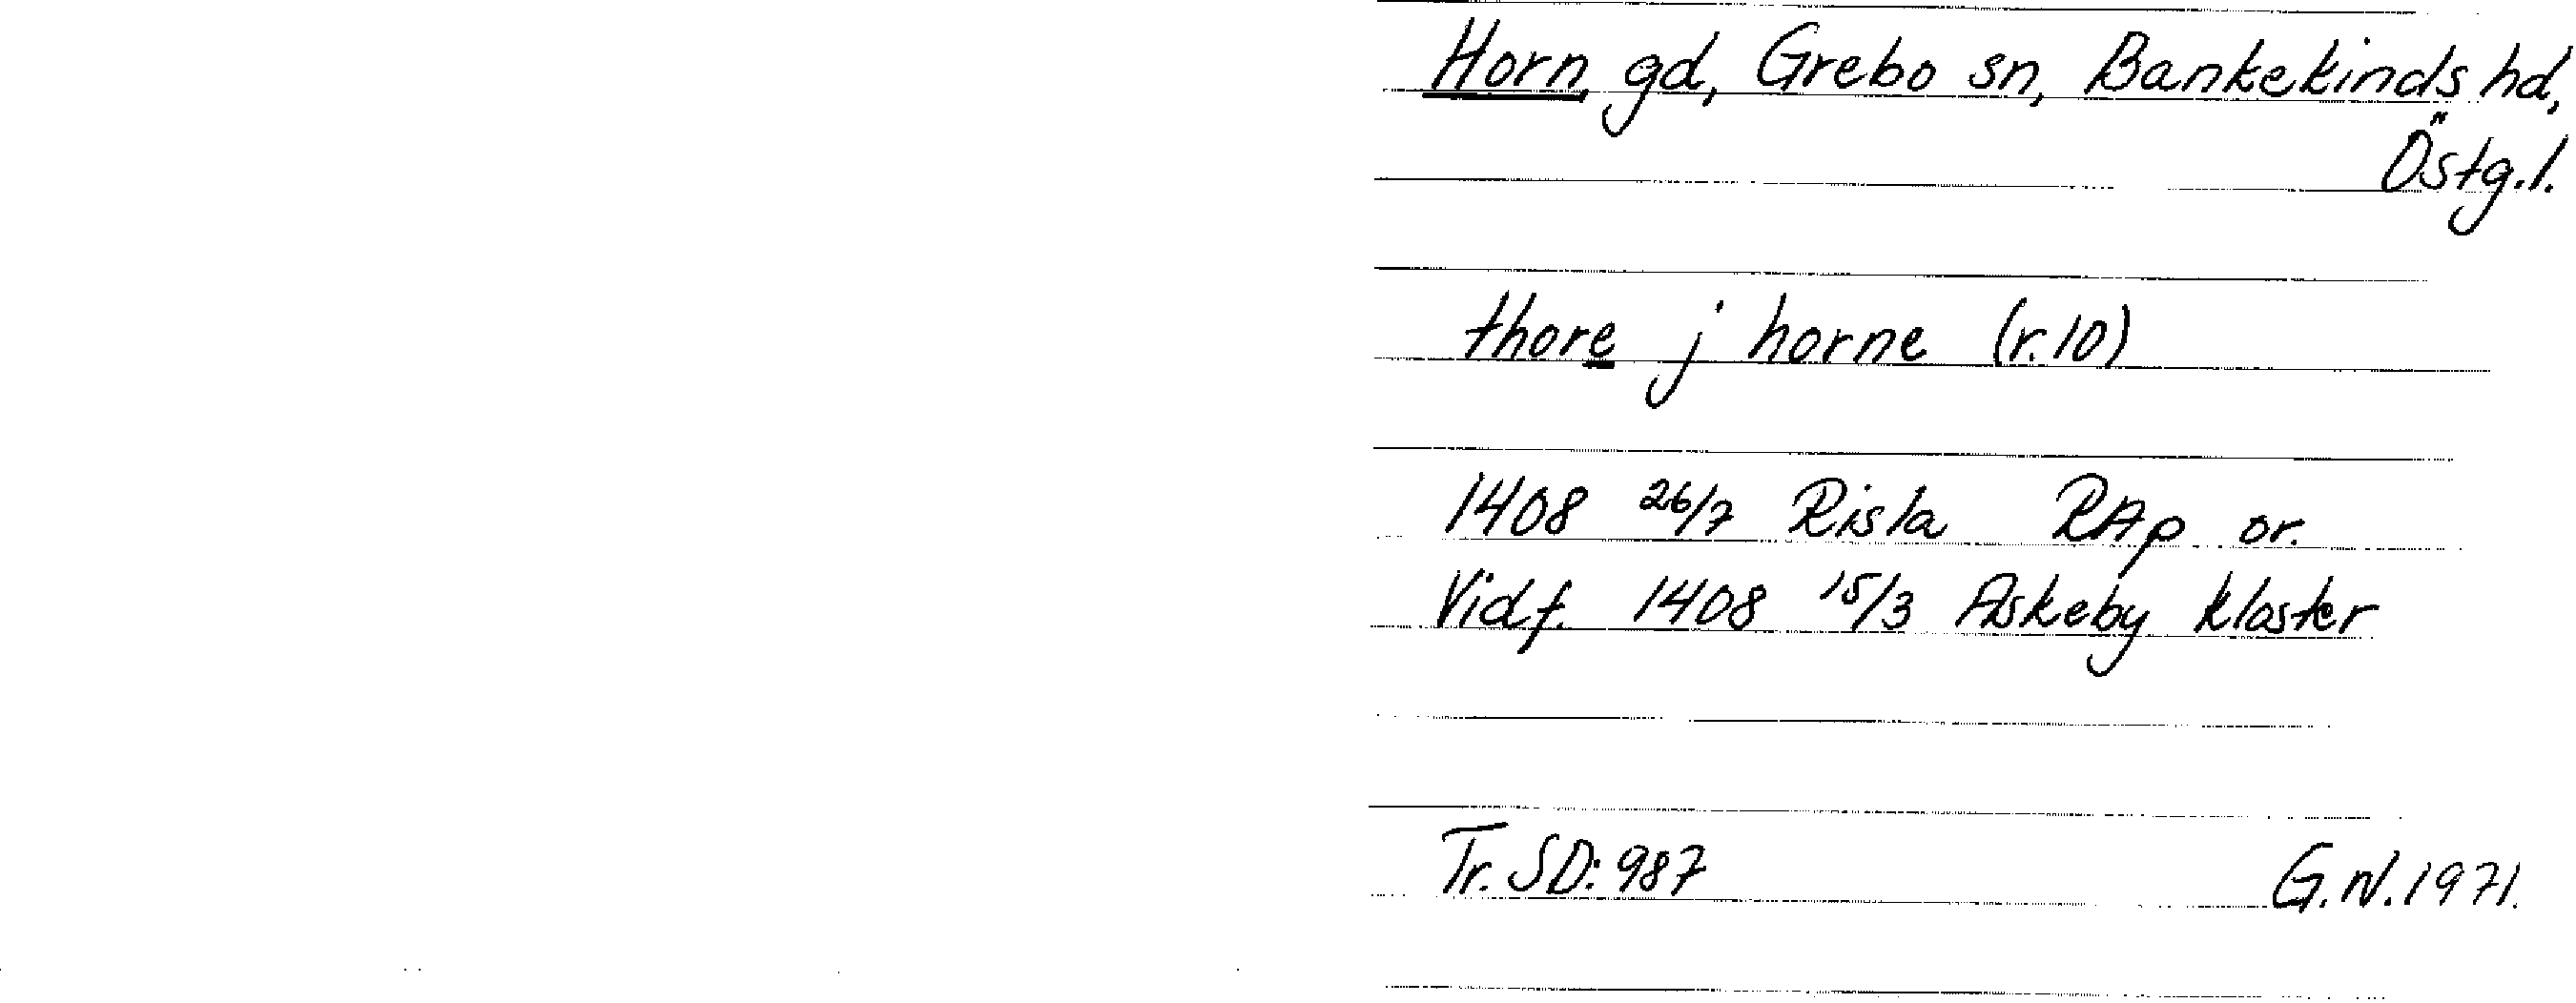 Horn, gd, Grebo sn, Bankekinds hd,
Östg.l.
thore j horne (r.10)
1408 26/7 Risla RAp or.
Vidf. 1408 15/3 Askeby kloster
Tr. SD: 987 G.N. 1971.